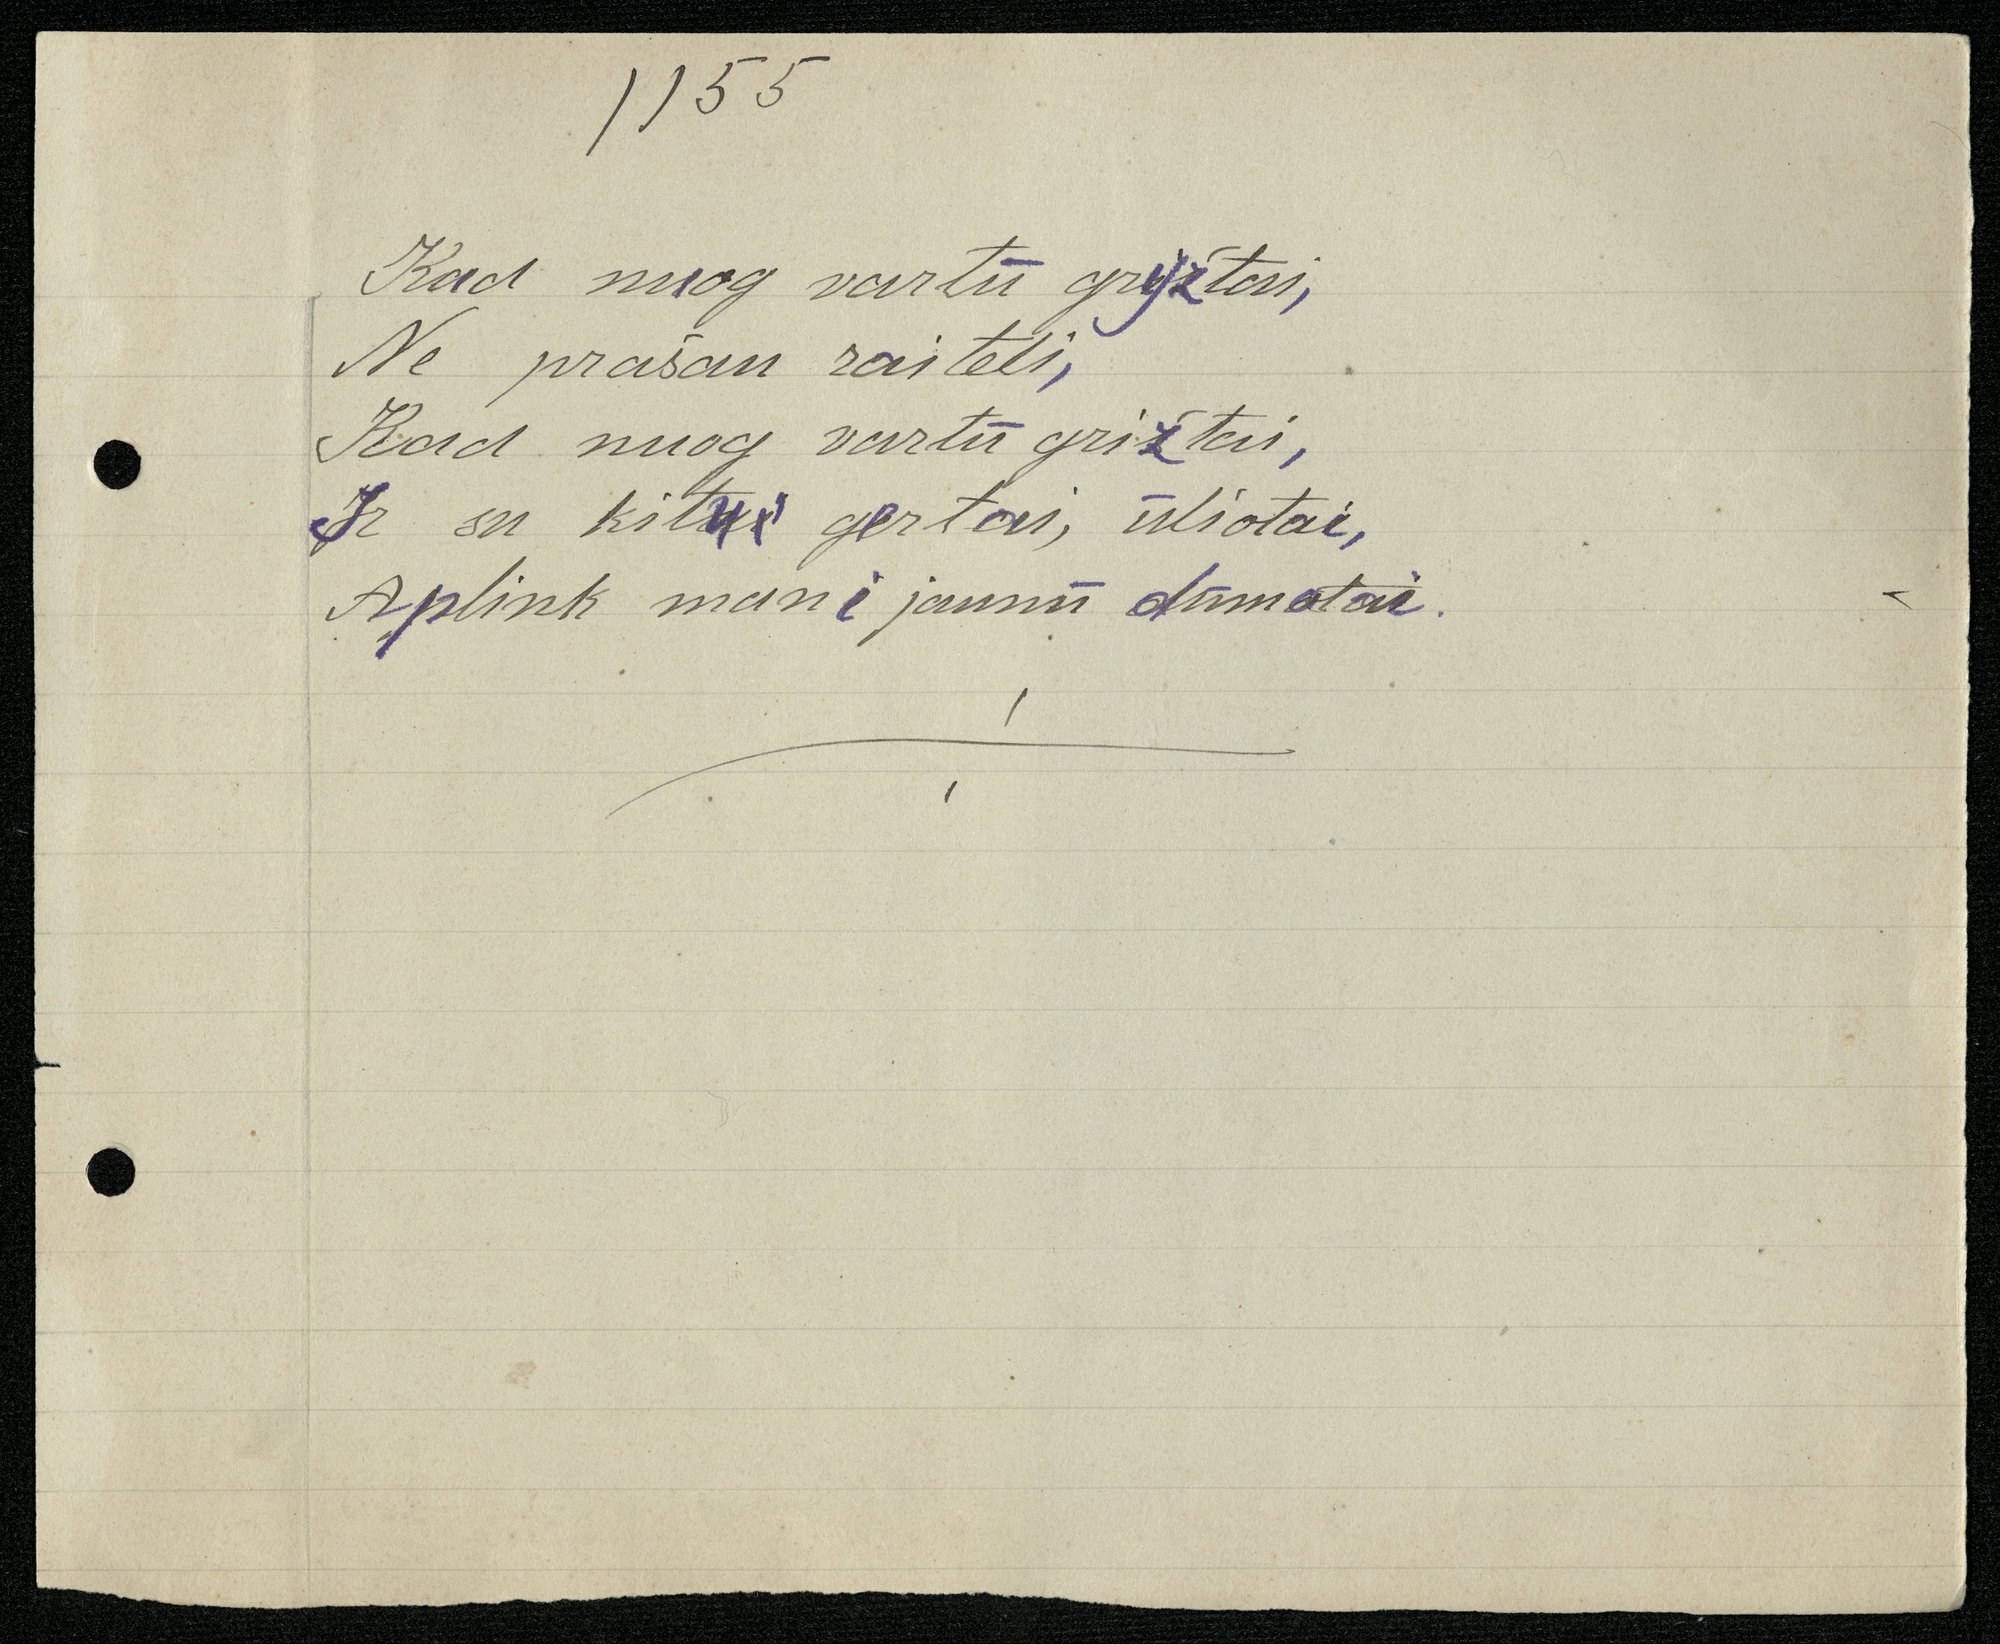 1155
Kad nuog vartū gryžtai,
Ne prašau raiteli,
Kad nuog vartū grižtai,
Ir su kitui gertai, ūliotai,
Aplink mani jaunū dūmotai.